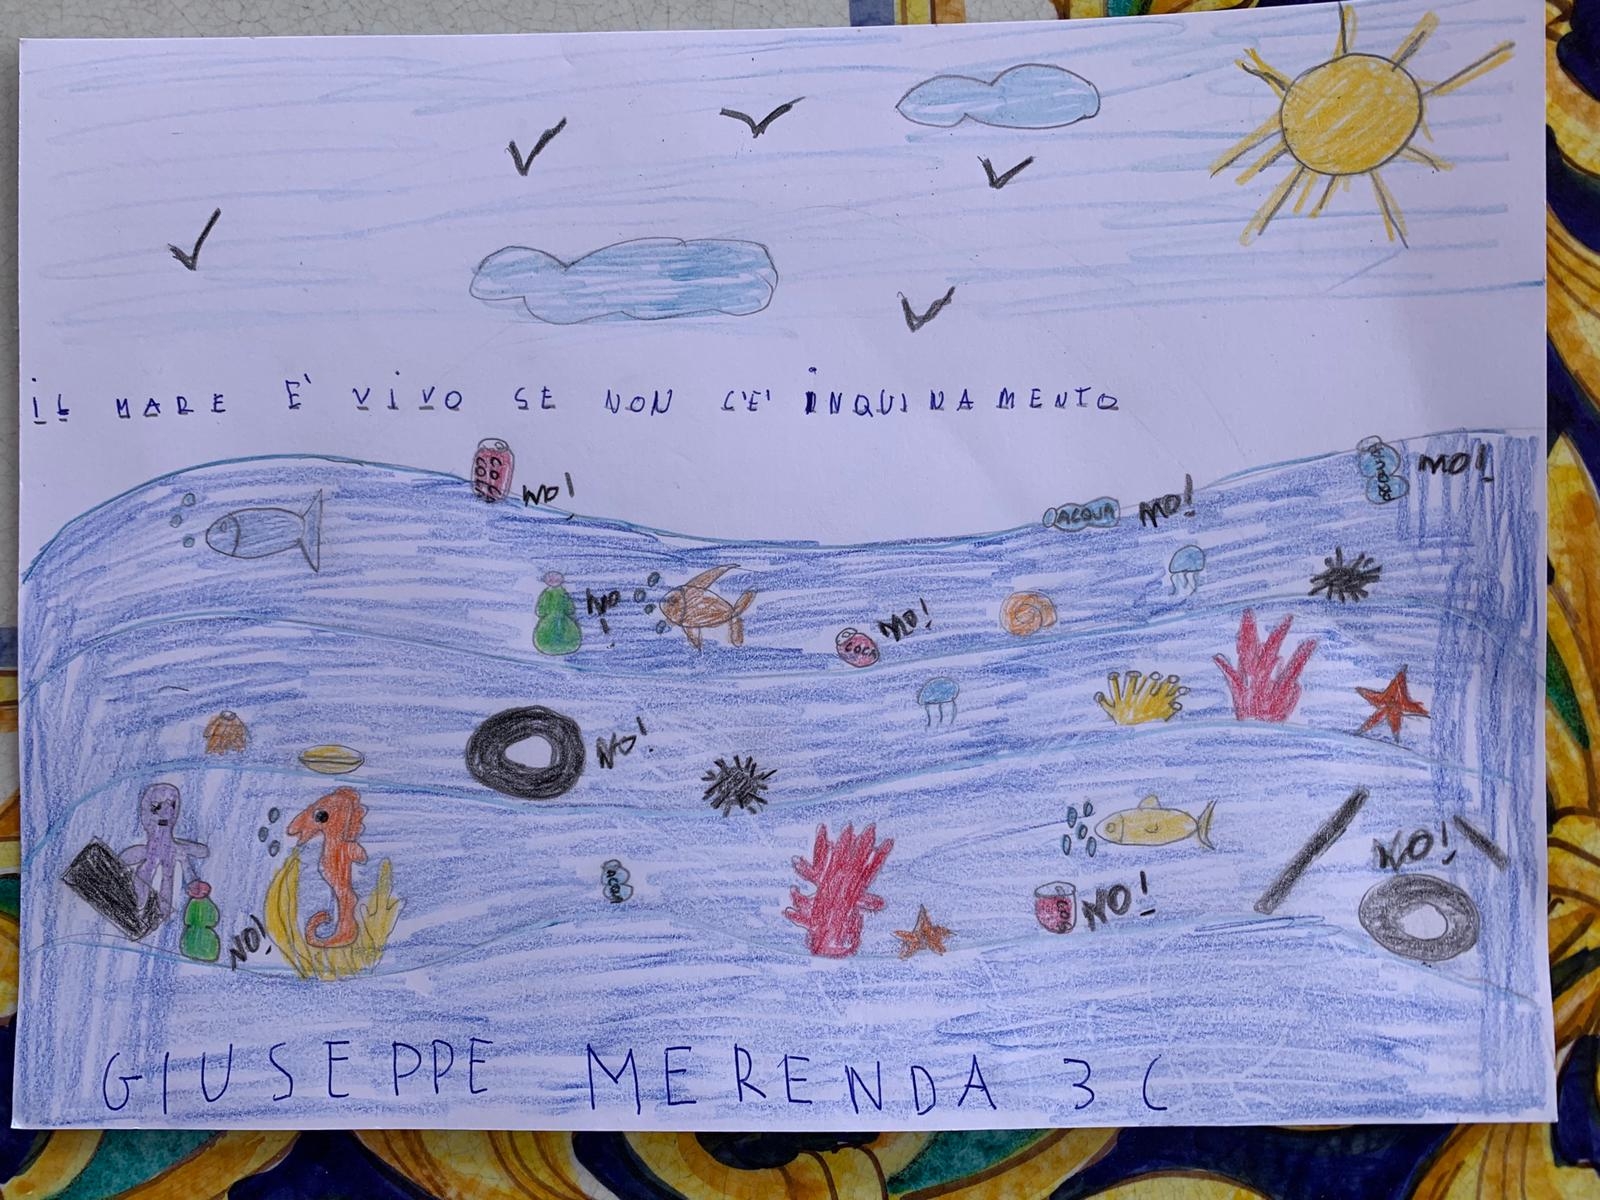 iL MARE E' ViVO SE NON C'E' iNQUiNAMENTO
COCA COLA NO!
ACQUA NO!
ACQUA NO!
NO!
COCA NO!
NO!
NO!
NO!
ACQUA
NO!
NO!
GIUSEPPE MERENDA 3 C